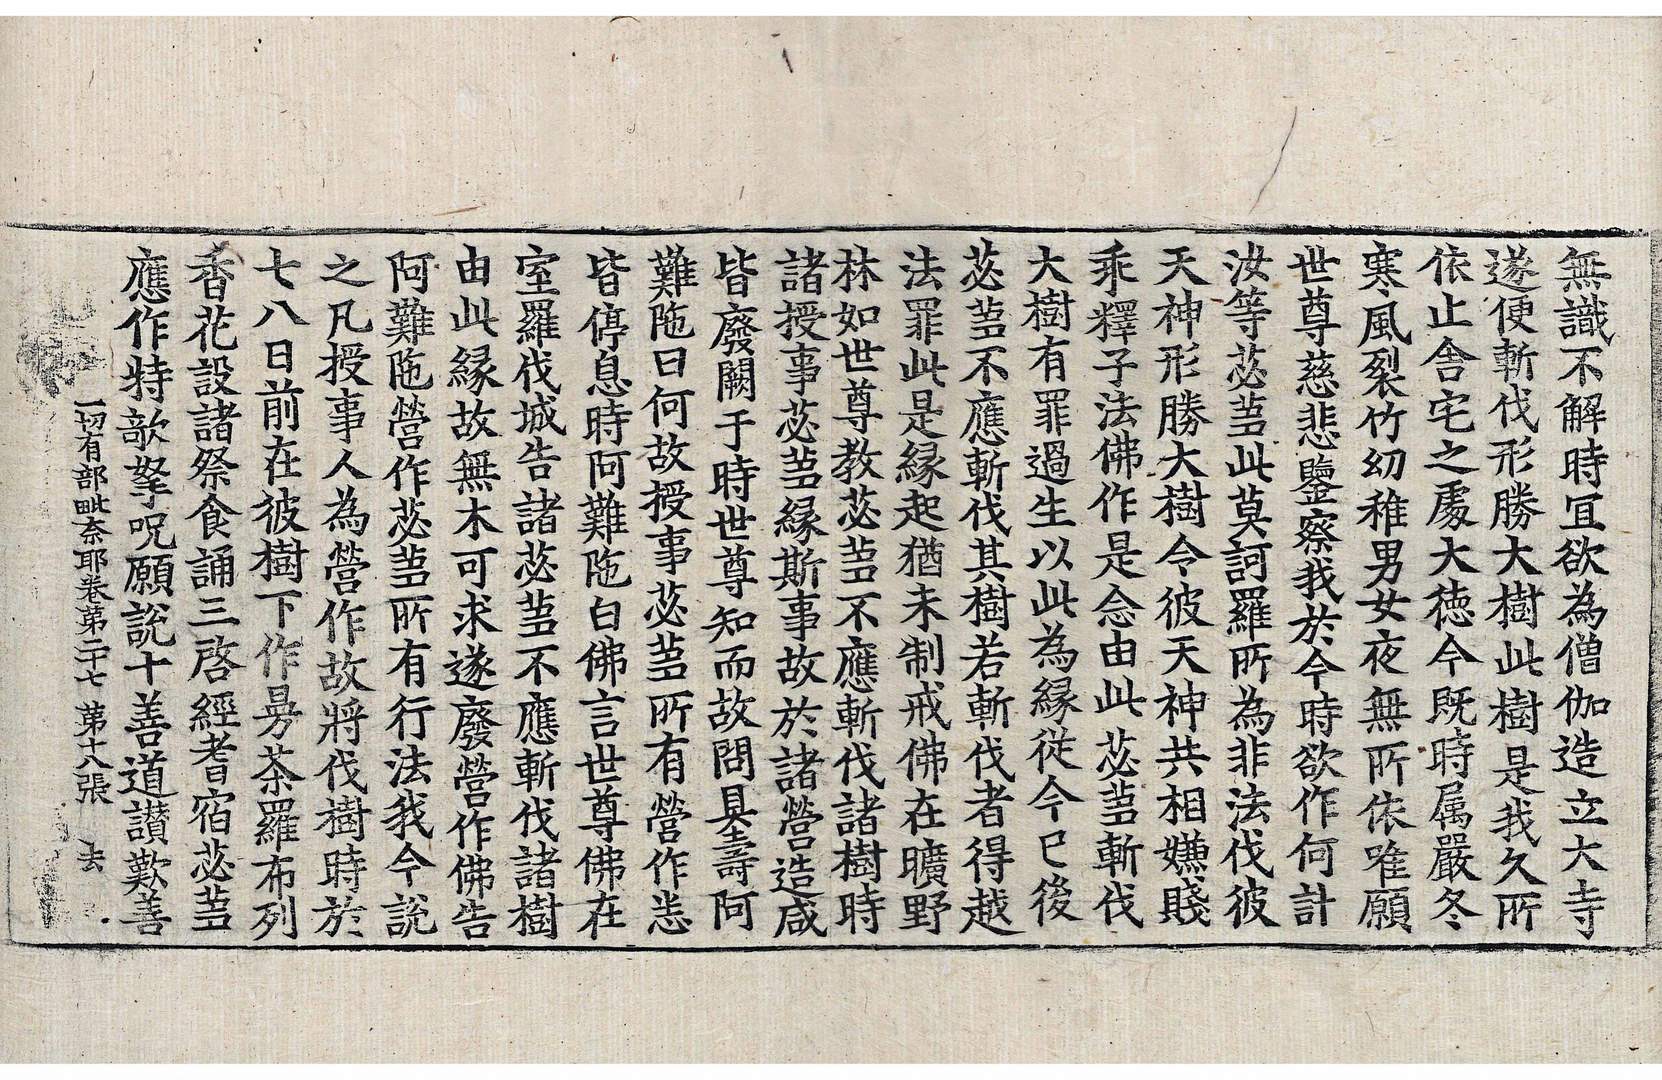 無識不解時冝欲為僧伽造立大寺
遂便斬伐形勝大樹此樹是我久所
依止舍宅之處大徳今既時属嚴冬
寒風裂竹幼稚男女夜無所依唯願
世尊慈悲鑒察我於今時欲作何計
汝等苾芻此莫訶羅所為非法伐彼
天神形勝大樹令彼天神共相嫌賤
乖釋子法佛作是念由此苾芻斬伐
大樹有罪過生以此為縁従今已後
苾芻不應斬伐其樹若斬伐者得越
法罪此是縁起猶未制戒佛在曠野
林如世尊教苾芻不應斬伐諸樹時
諸授事苾芻縁斯事故於諸營造咸
皆廢闕于時世尊知而故問具壽阿
難陁曰何故授事苾芻所有營作悉
皆停息時阿難陁白佛言世尊佛在
室羅伐城告諸苾芻不應斬伐諸樹
由此縁故無木可求遂廢營作佛告
阿難陁營作苾芻所有行法我今說
之凡授事人為營作故將伐樹時於
七八日前在彼樹下作曼荼羅布列
香花設諸祭食誦三啓經耆宿苾芻
應作特欹拏呪願說十善道讃歎善
一切有部毗奈耶卷第二十七 第十八張 去